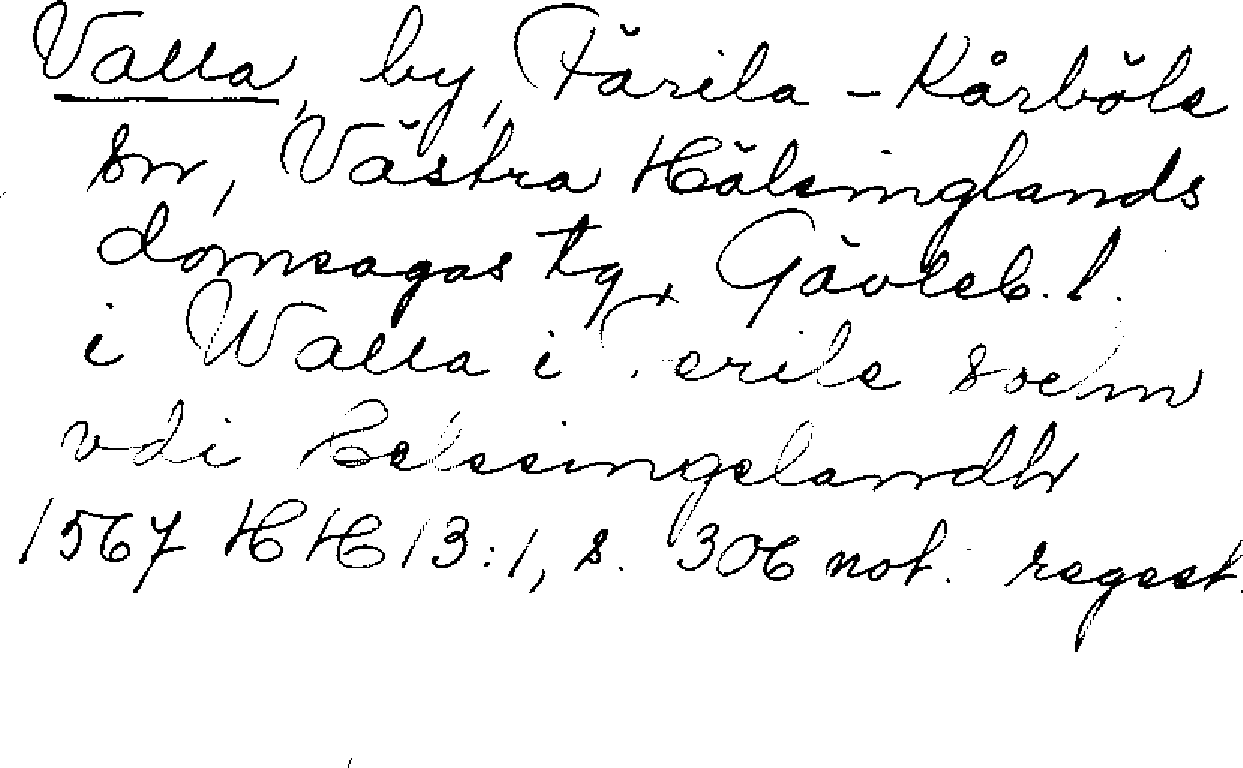 Valla, by, Färila-Kårböle
sn, Västra Hälsinglands
domsagas tg, Gävleb. l.
i Walla i Ferile sochn
vdi Helssingelandh
1567 HH 13:1, s. 306 not. regest.